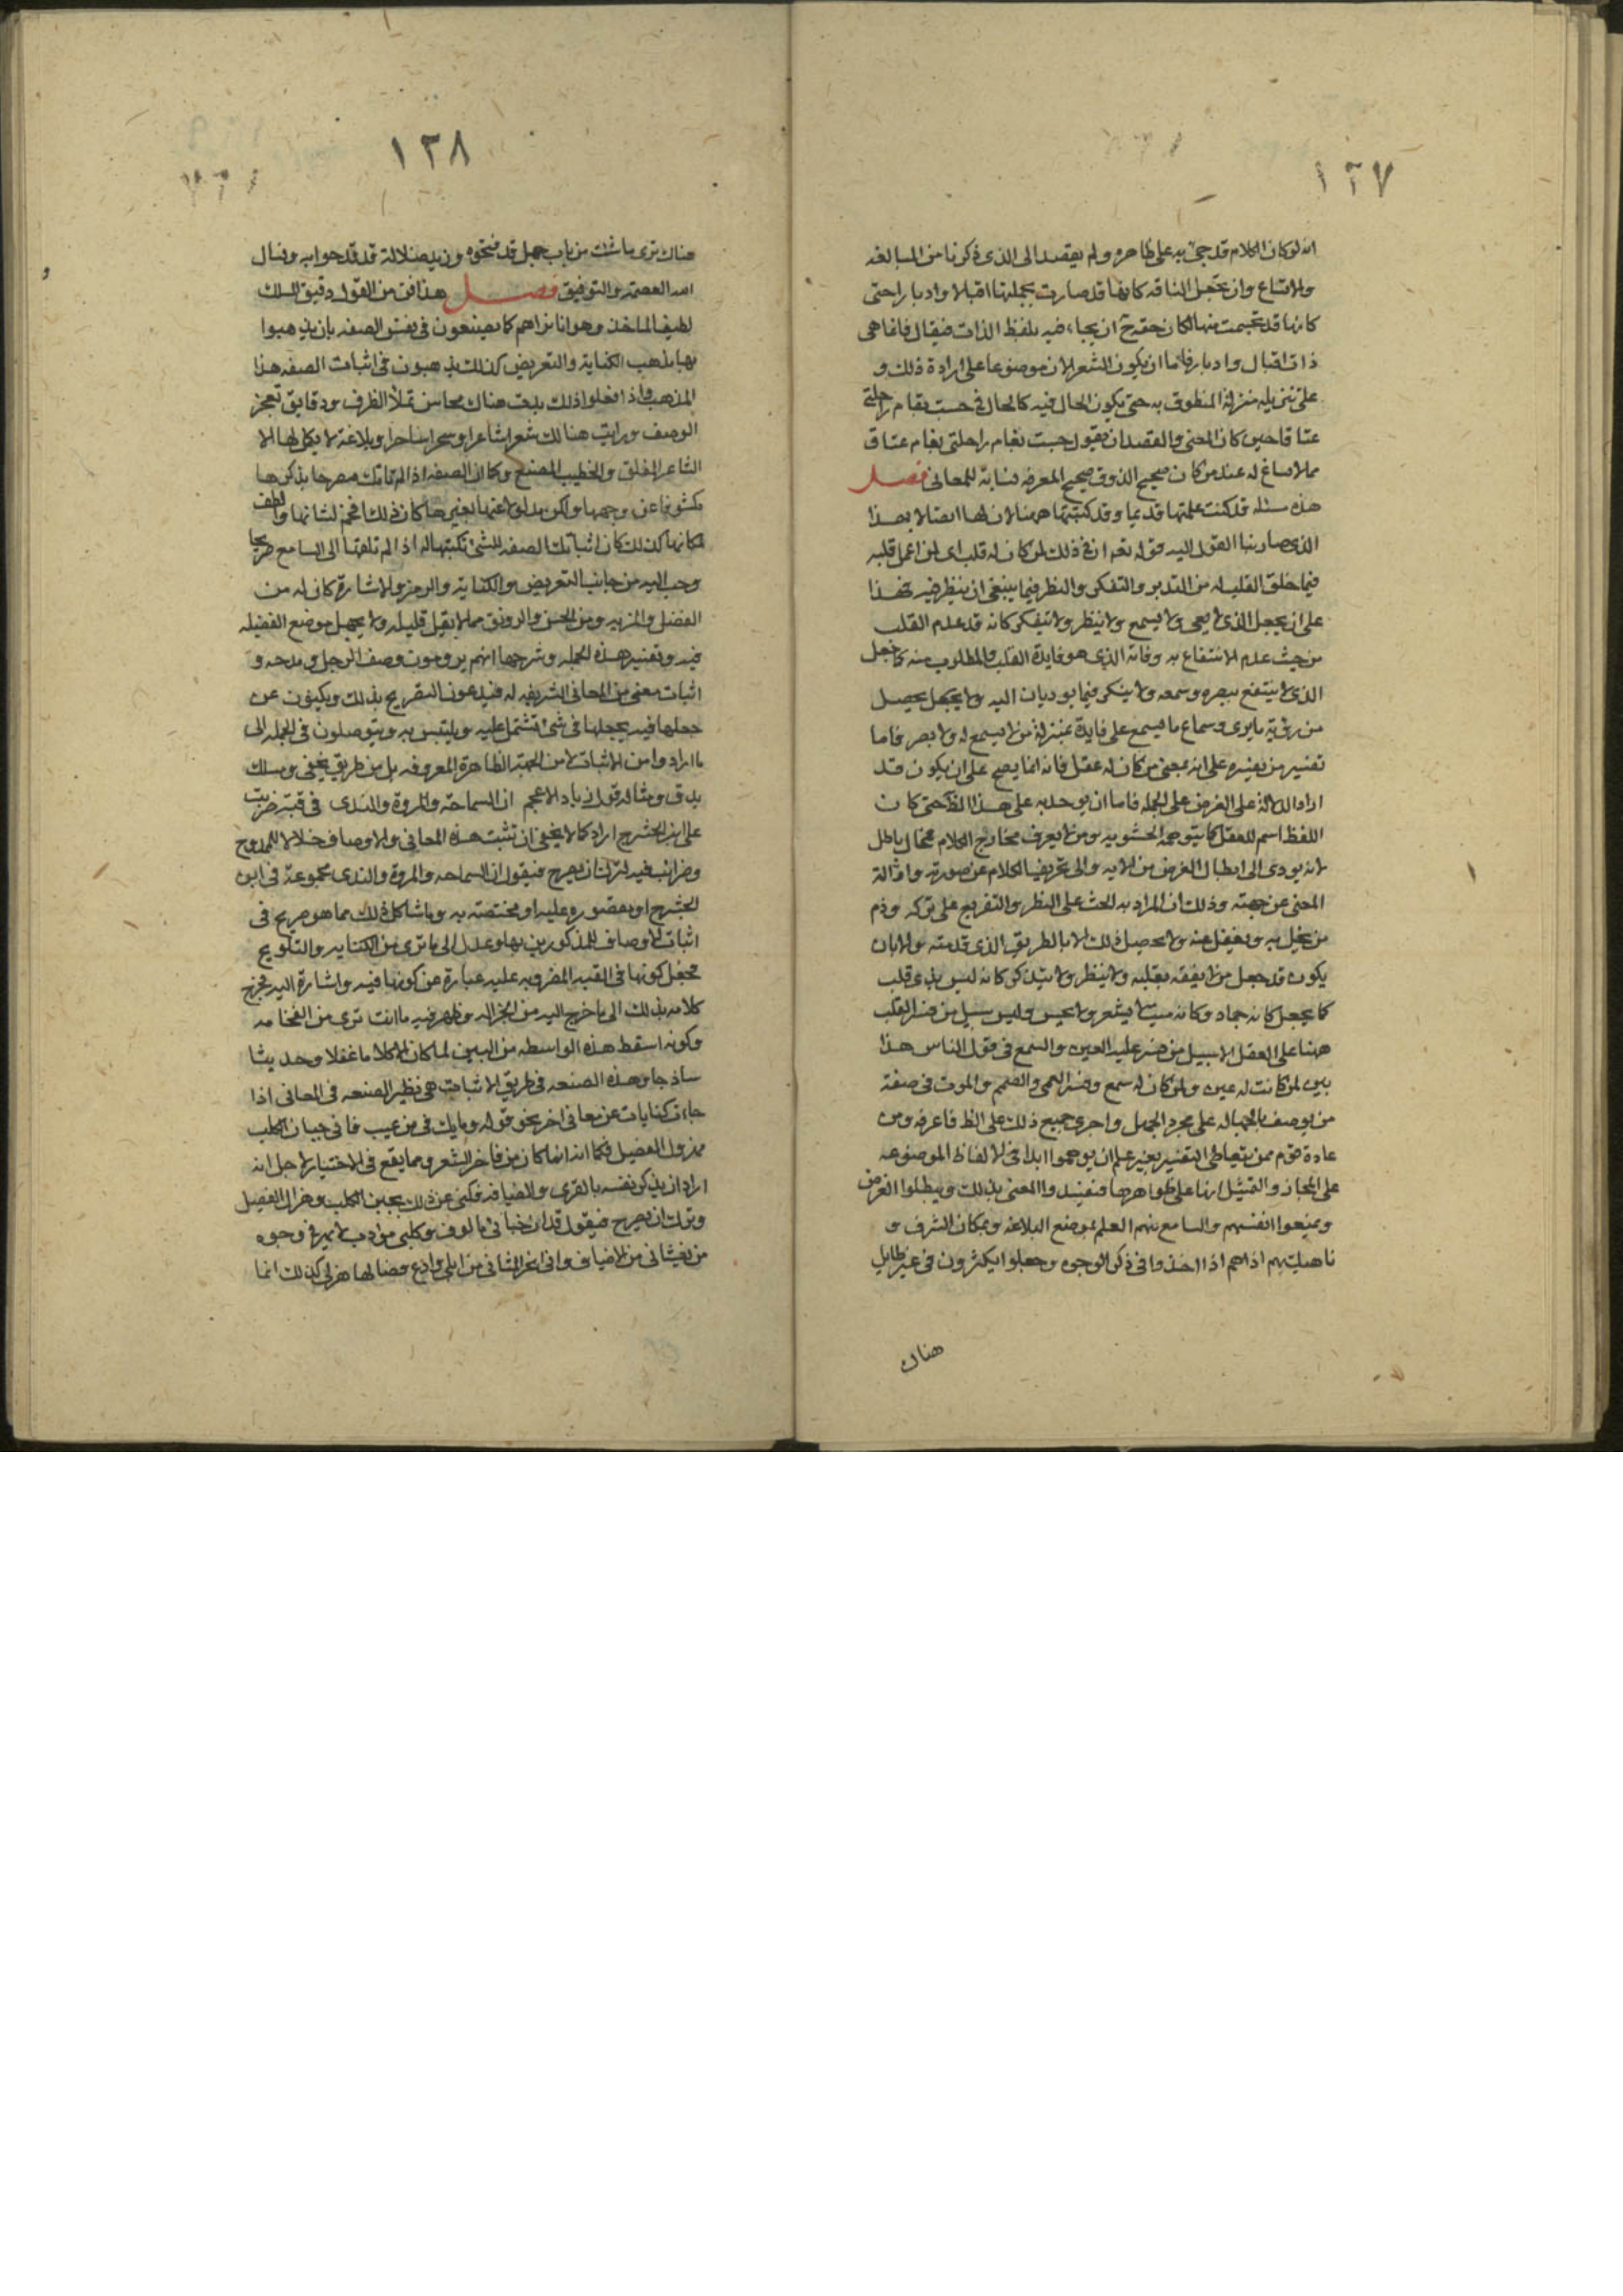 ١٢٧
انه لو كان الكلام قد جئ به على ظاهره ولم يقصد الى الذى ذكرنا من المبالغه
والاتساع وان تجعل الناقه كانها قد صارت بجملتها اقبالا وادبارا حتى
كانها قد تجسمت منهما لكان حقه ح ان يجاء فيه بلفظ الذات فيقال فانما هى
ذات اقبال وادبار فاما ان يكون الشعر الان موضوعا على ارادة ذلك و
على تنزيله منزلة المنطوق به حتى يكون الحال فيه كالحال فى حسبت بغام راحلتى
عناقا حين كان المعنى والقصد ان يقول حسبت بغام راحلتى بغام عناق
مما لا مساغ له عند من كان صحيح الذوق صحيح المعرفه نسابة للمعانى فصل
هذه مسئلة قد كنت علمتها قديما وقد كتبتها ههنا لان لها اتصالا بهذا
الذى صار بنا القول اليه قوله تعه ان فى ذلك لمن كان له قلب اى لمن اعمل قلبه
فيما خلق القلب له من التدبر والتفكر والنظر فيما ينبغى ان ينظر فيه فهذا
على ان يجعل الذى لا يعى ولا يسمع ولا ينظر ولا يتفكر كانه قد عدم القلب
من حيث عدم الانتفاع به وفاته الذى هو فايدة القلب والمطلوب منه كما جعل
الذى لا ينتفع ببصره وسمعه ولا يفكر فيما يوديان اليه ولا يحصل
من رؤية ما يرى وسماع ما يسمع على فايدة بمنزلة من لا يسمع له ولا بصر فاما
تفسير من يفسره على انه بمعنى من كان له عقل فانه انما يصح على ان يكون قد
اراد الدلالة على الغرض على الجمله فاما ان يوخذ به على هذا الظ حتى كان
اللفظ اسم للعقل كما يتوهمه الحشويه ومن لا يعرف مخارج الكلام فمحال باطل
لانه يودى الى ابطال الغرض من الايه والى تحريف الكلام عن صورته وازالة
المعنى عن جهته وذلك ان المراد به الحث على النظر والتقريع على تركه وذم
من يخل به ويغفل عنه ولا يحصل ذلك الا بالطريق الذى قدمته والا بان
يكون قد جعل من لا يفقه بقلبه ولا ينظر ولا يتذكر كانه ليس بذى قلب
كما يجعل كانه جماد وكانه ميت لا يشعر ولا يحس وليس سبيل من فسر القلب
ههنا على العقل الا سبيل من فسر عليه العين والسمع فى قول الناس هذا
بين لمن كانت له عين ولمن كان له سمع وفسر العمى والصمم والموت فى صفة
من يوصف بالجهاله على مجرد الجهل واجرى جميع ذلك على الظ فاعرفه ومن
عادة قوم ممن يتعاطى التفسير بغير علم ان يوهموا ابدا فى الالفاظ الموضوعه
على المجاز والتمثيل انها على ظواهرها فيفسدوا المعنى بذلك ويبطلوا الغرض
ويمنعوا انفسهم والسامع منهم العلم بموضع البلاغه وبمكان الشرف و
ناهيك بهم اذا هم اذا اخذوا فى ذكر الوجوه وجعلوا يكثرون فى غير طايل
هناك
١٢٨
هناك ترى ما شئت من باب جهل قد فتحوه وزند ضلالة قد قدحوا به ونسال
الله العصمة والتوفيق فصل هذا فن من القول دقيق المسلك
لطيف الماخذ وهو انا نراهم كما يصنعون فى نفس الصفه بان يذهبوا
بها مذهب الكناية والتعريض كذلك يذهبون فى اثبات الصفه هذا
المذهب واذا فعلوا ذلك بدت هناك محاسن تملأ الطرف ودقايق تعجز
الوصف ورايت هنالك شعرا شاعرا وسحرا ساحرا وبلاغة لا يكمل لها الا
الشاعر المفلق والخطيب المصقع وكما ان الصفه اذا لم تاتك مصرحا بذكرها
مكشوفا عن وجهها ولكن مدلولا عليها بغيرها كان ذلك افخم لشانها والطف
لمكانها كذلك كان اثباتك الصفه للشئ تثبتها له اذا لم تلقه الى السامع صريحا
وجئت اليه من جانب التعريض والكناية والرمز والاشارة كان له من
الفضل والمزيه ومن الحسن والرونق مما لا يقل قليله ولا يجهل موضع الفضيله
فيه وتفسير هذه الجمله وشرحها انهم يرومون وصف الرجل ومدحه و
اثبات معنى من المعانى الشريفه له فيدعون التصريح بذلك ويكنون عن
جعلها فيه بجعلها فى شئ تشتمل عليه ويلتبس به ويتوصلون فى الجمله الى
ما ارادوا من الاثبات لا من الجهة الظاهرة المعروفه بل من طريق يخفى ومسلك
يدق ومثاله قول زياد الاعجم ان السماحة والمروة والندى فى قبة ضربت
على ابن الحشرج اراد كما لا يخفى ان تثبت هذه المعانى والاوصاف خلالا للممدوح
وضرائب فيه فترك ان يصرح فيقول ان السماحه والمروة والندى مجموعة فى ابن
الحشرج او مقصوره عليه او مختصته به وما شاكل ذلك مما هو صريح فى
اثبات الاوصاف للمذكورين بها وعدل الى ما ترى من الكنايه والتلويح
فجعل كونها فى القبه المضروبه عليه عبارة عن كونها فيه واشارة اليه فخرج
كلامه بذلك الى ما خرج اليه من الجزاله وظهر فيه ما انت ترى من الفخامه
وكونه اسقط هذه الواسطه من البين لما كان الا كلاما غفلا وحديثا
ساذجا وهذه الصنعه فى طريق الاثبات هى نظير الصنعه فى المعانى اذا
جاءت كنايات عن معانى اخر نحو قوله وما يك فى من عيب فانى جبان الكلب
مهزول الفصيل فكما انه انما كان من فاخر الشعر ومما يقع فى الاختيار لاجل انه
اراد ان يذكر نفسه بالقرى والضيافه فكنى عن ذلك بجبن الكلب وهزال الفصيل
وترك ان يصرح فيقول قد ان جنابى مالوف وكلبى مؤدب لا يهر فى وجوه
من يغشانى من الاضياف وانى انحر المتالى من ابلى وادع فصالها هزلى كذلك انما